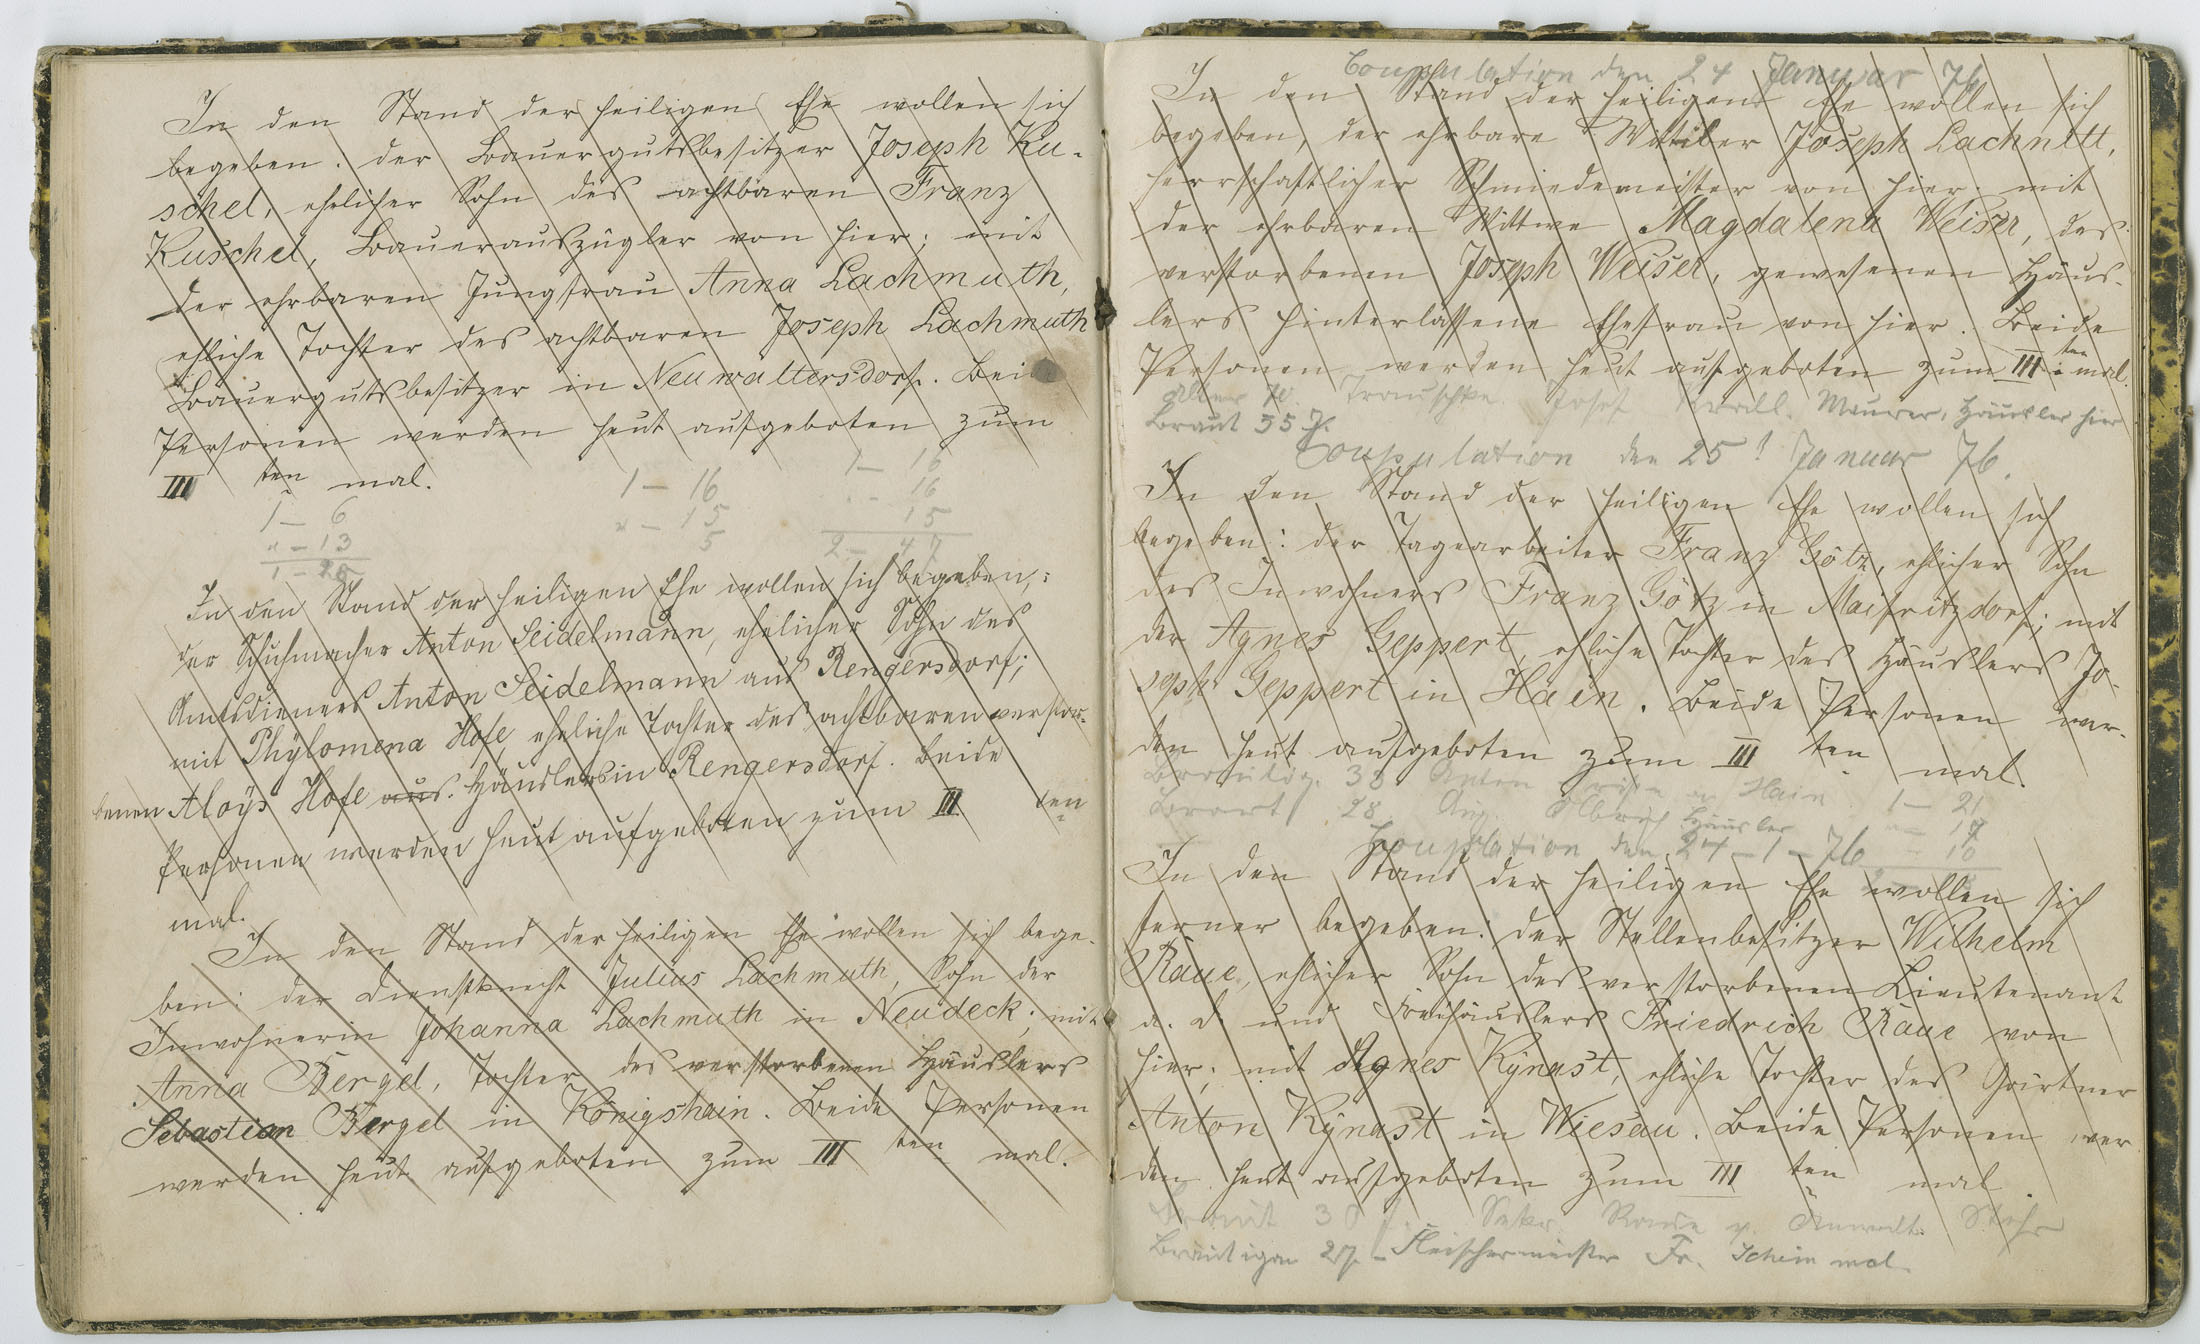 In den Stand der heiligen Ehe wollen sich
begeben. der Bauergutsbesitzer Joseph Ku-
schel, ehelicher Sohn des achtbaren Franz
Kuschel, Bauerauszügler von hier; mit
der ehrbaren Jungfrau Anna Lachmuth,
ehliche Tochter des achtbaren Joseph Lachmuth
Bauergutsbesitzer in Neuwaltersdorf. Beide
Personen werden heut aufgeboten zum
III ten mal.
1 – 16
1 – 16
1 – 6
" – 15
" – 16
" – 13
5
15
1 – 26
2 – 47
In den Stand der heiligen Ehe wollen sich begeben,:
der Schuhmacher Anton Seidelmann, ehelicher Sohn des
Amtsdieners Anton Seidelmann aus Rengersdorf;
mit Phÿlomena Hofe, eheliche Tochter des achtbaren verstor-
benen Aloÿs Hofe aus. Häuslers in Rengersdorf. Beide
Personen werden heut aufgeboten zum III ten
mal.
In den Stand der heiligen Ehe wollen sich bege-
ben: der Dienstknecht Julius Lachmuth, Sohn der
Inwohnerin Johanna Lachmuth in Neudeck; mit
Anna Bergel, Tochter des verstorbenen Häuslers
Sebastian Bergel in Königshain. Beide Personen
werden heut aufgeboten zum III ten mal.
Coupulation den 24 Januar 76
In den Stand der heiligen Ehe wollen sich
begeben, der ehrbare Wittiber Joseph Lachnitt,
herrschaftlicher Schmiedemeister von hier. mit
der ehrbaren Wittwe Magdalena Weiser, des
verstorbenen Joseph Weiser, gewesenen Häus-
lers hinterlassene Ehefrau von hier. Beide
Personen werden heut aufgeboten zum III ten mal.
Trauschke. Josef Maurer, Häusler hier
Braut 55 J.
Coupulation den 25! Januar 76.
In den Stand der heiligen Ehe wollen sich
begeben: der Tagearbeiter Franz Götz, ehlicher Sohn
des Inwohners Franz Götz in Maifritzdorf; mit
der Agnes Geppert, ehliche Tochter des Häuslers Jo-
seph Geppert in Hain. Beide Personen wer-
den heut aufgeboten zum III ten mal.
Bräutig. 38 Anton Hain 1 – 21
Braut 28 Aug. Olbrich Häusler " – 17
Coupulation den 24 – 1 – 76 – 10
In den Stand der heiligen Ehe wollen sich
ferner begeben: der Stellenbesitzer Wilhelm
Raue, ehlicher Sohn des verstorbenen Lieutenant
a. D. und Freihäuslers Friedrich Raue von
hier; mit Agnes Kÿnast, ehliche Tochter des Gärtner
Anton Kÿnast in Wiesau. Beide Personen wer
den heut aufgeboten zum III ten mal.
Braut 30
Bräutigam 27. – Fleischermeister Fr. Scheinmal